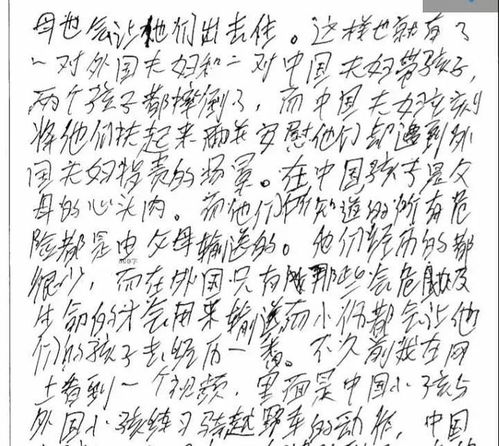 母也会让他们出去住。这样也就有了
一对外国夫妇和一对中国夫妇带孩子,
两个孩子都摔倒了,而中国夫妇立刻
将他们扶起来并安慰他们却遭到外
国夫妇指责的场景。在中国孩子是父
母的心头肉。而他们所知道的所有危
险都是由父母输送的。他们经历的都
很少,而在外国只有那些会危及
生命的才会用来输送而小伤都会让他
们的孩子去经历一番。不久前我在网
上看到一个视频,里面是中国小孩与
外国小孩练习骑越野车的动作,中国